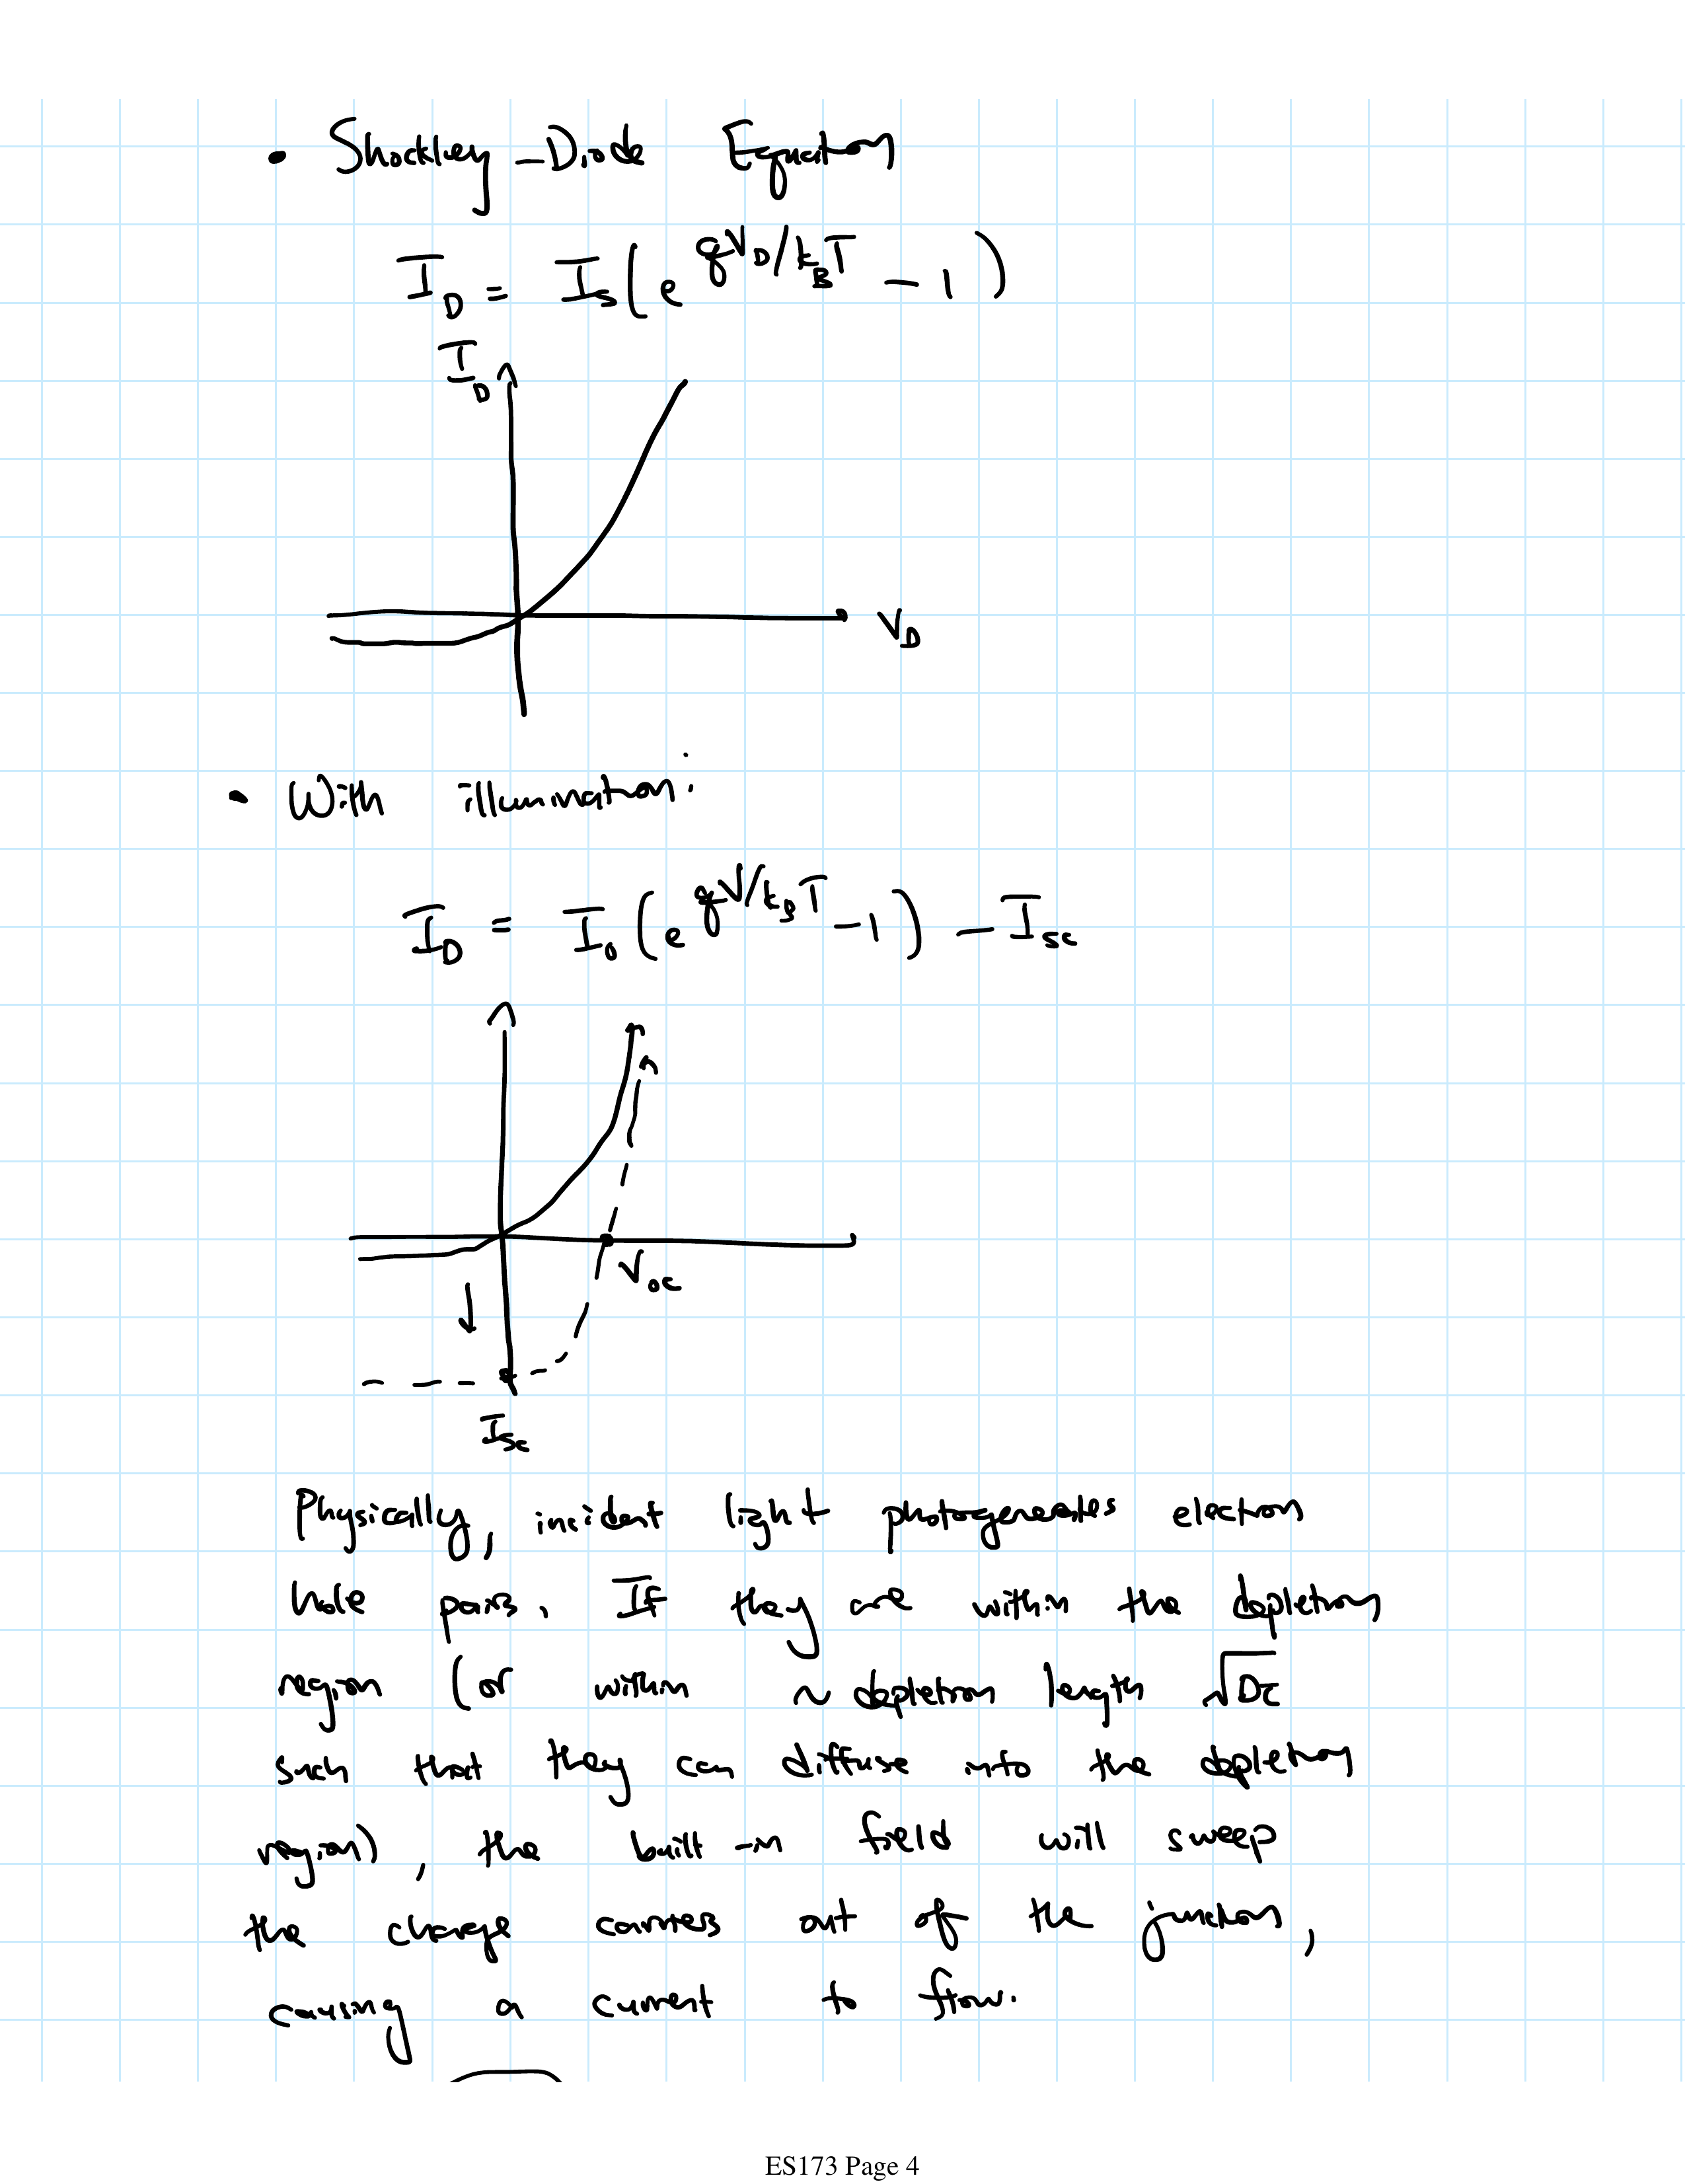 • Shockley-Diode Equation
I_D = I_s(e^{qV_D/k_BT} - 1)
I_D
V_D
• With illumination:
I_D = I_0(e^{qV/k_BT} - 1) - I_sc
V_oc
I_sc
Physically, incident light photogenerates electron
hole pairs. If they are within the depletion
region (or within ~ depletion length √Dτ
such that they can diffuse into the depletion
region), the built-in field will sweep
the charge carriers out of the junction,
causing a current to flow.
ES173 Page 4